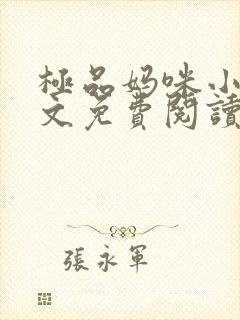 極品妈咪小
文免費閱讀
張永軍